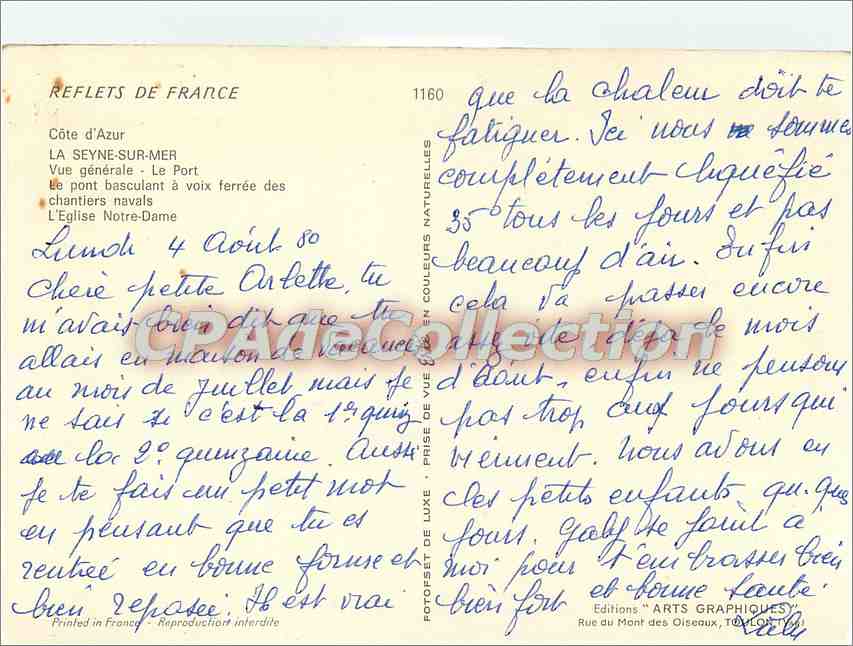 REFLETS DE FRANCE
1160
Côte d'Azur
LA SEYNE-SUR-MER
Vue générale - Le Port
Le pont basculant à voix ferrée des
chantiers navals
L'Eglise Notre-Dame
Lundi 4 Août 80
Chère petite Arlette, tu
m'avais bien dit que tu
allais en maison de vacances
au mois de juillet mais je
ne sais si c'est la 1er quinz
la 2° quinzaine. Aussi
je te fais un petit mot
en pensant que tu es
rentrée en bonne forme et
bien reposée. Il est vrai
Printed in France - Reproduction interdite
FOTOFSET DE LUXE - PRISE DE VUE EN COULEURS NATURELLES
que la chaleur doit te
fatiguer. Ici nous sommes
complètement liquéfié
35° tous les jours et pas
beaucoup d'air. Enfin
cela va passer encore
assez vite déjà le mois
d'Août, enfin ne pensons
pas trop aux jours qui
viennent. Nous avons eu
les petits enfants qq. ques
jours. Gaby se joint a
moi pour t'embrasser bien
bien fort et bonne santé
Editions "ARTS GRAPHIQUES"
Rue du Mont des Oiseaux, TOULON (Var)
CPAdeCollection